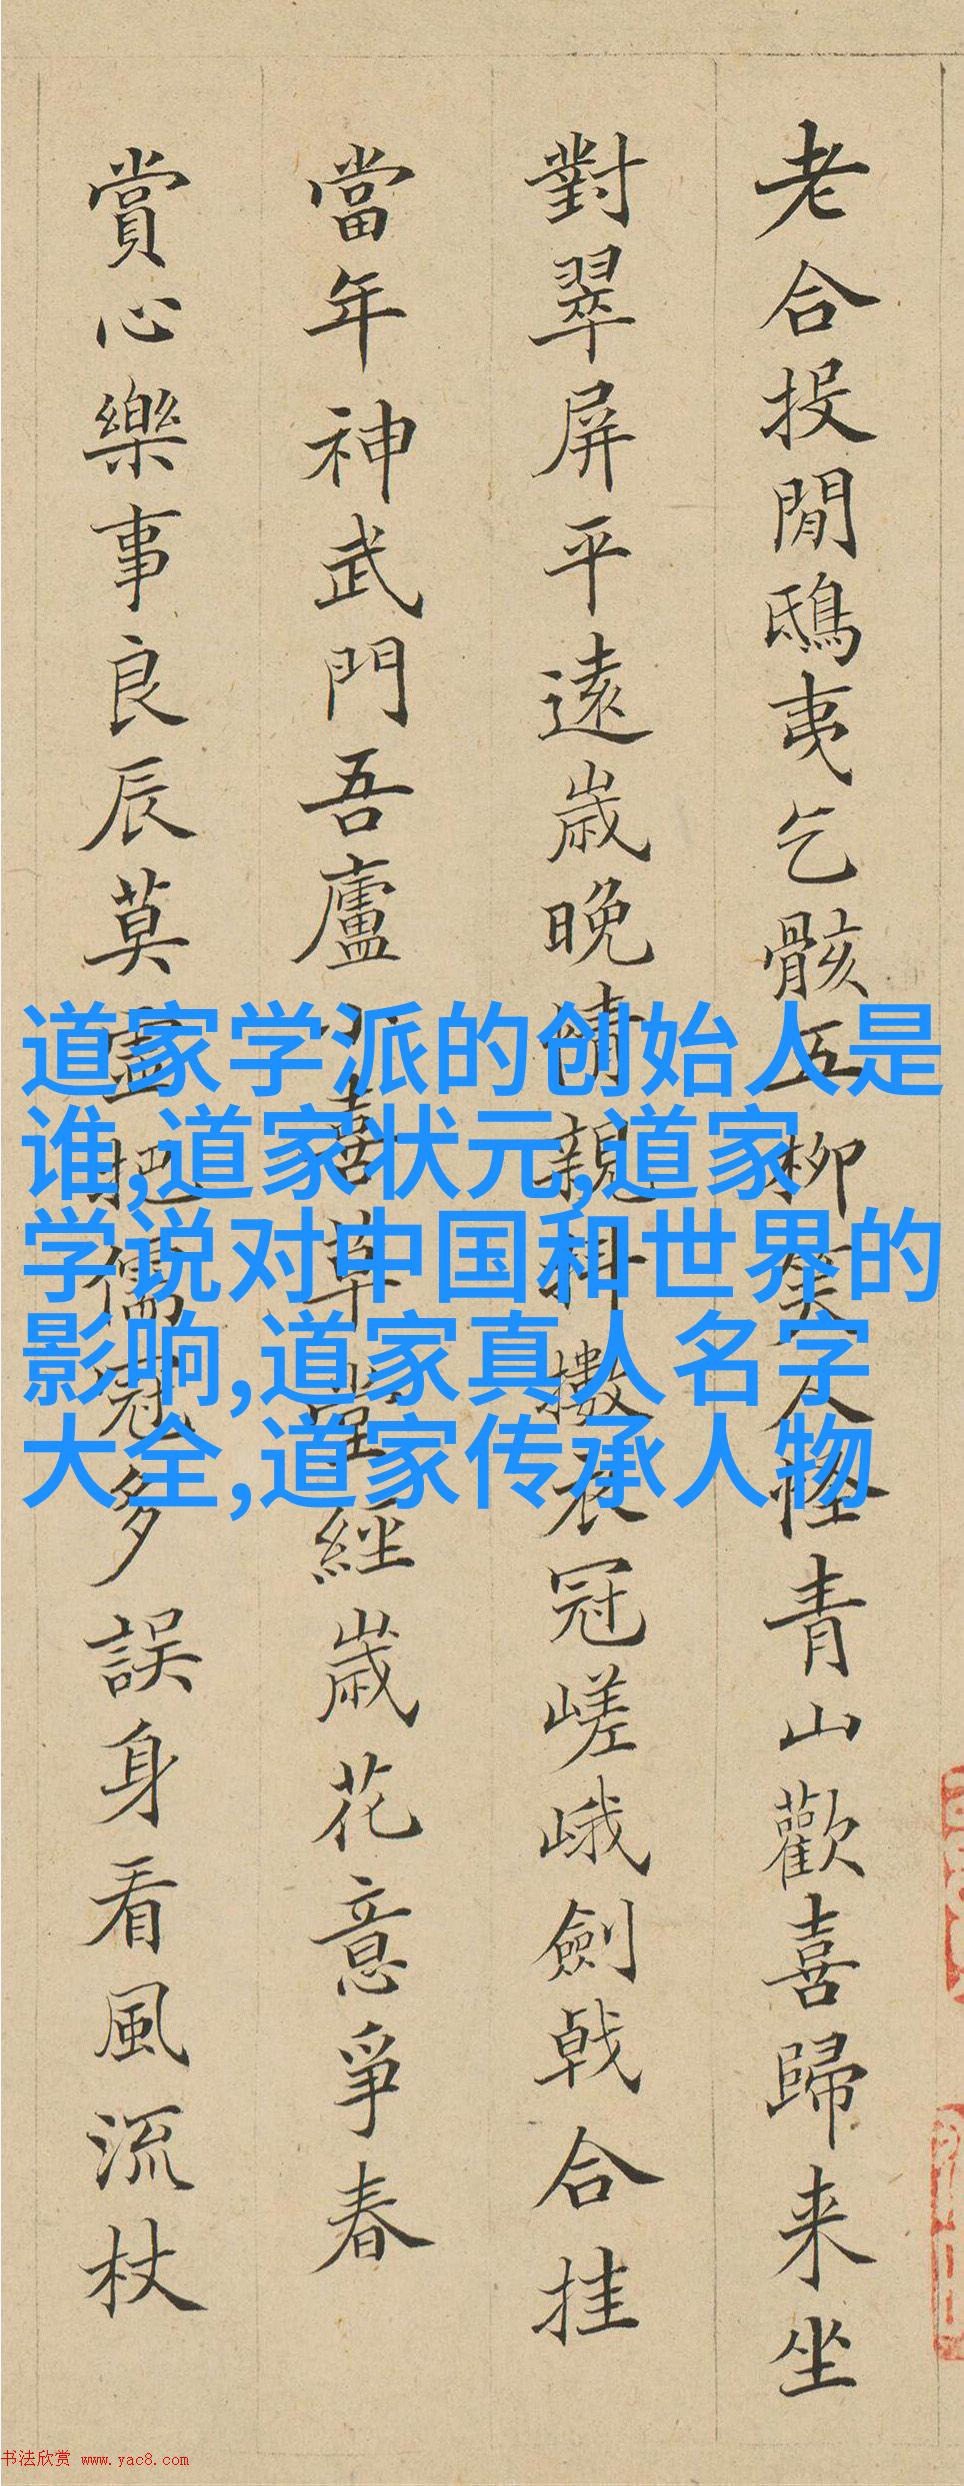 老合投閒鴟夷乞骸五柳笑人怪青山歡喜歸来坐
對翠屏平遠歲晚情親抖擻衣冠嵯峨劍戟合挂
當年神武門吾廬小喜草堂經歲花意爭春
賞心樂事良辰莫把儒冠多誤身看風流杖
道家学派的创始人是
谁,道家状元,道家
学说对中国和世界的
影响,道家真人名字
大全,道家传承人物
书法欣赏 www.yac8.com